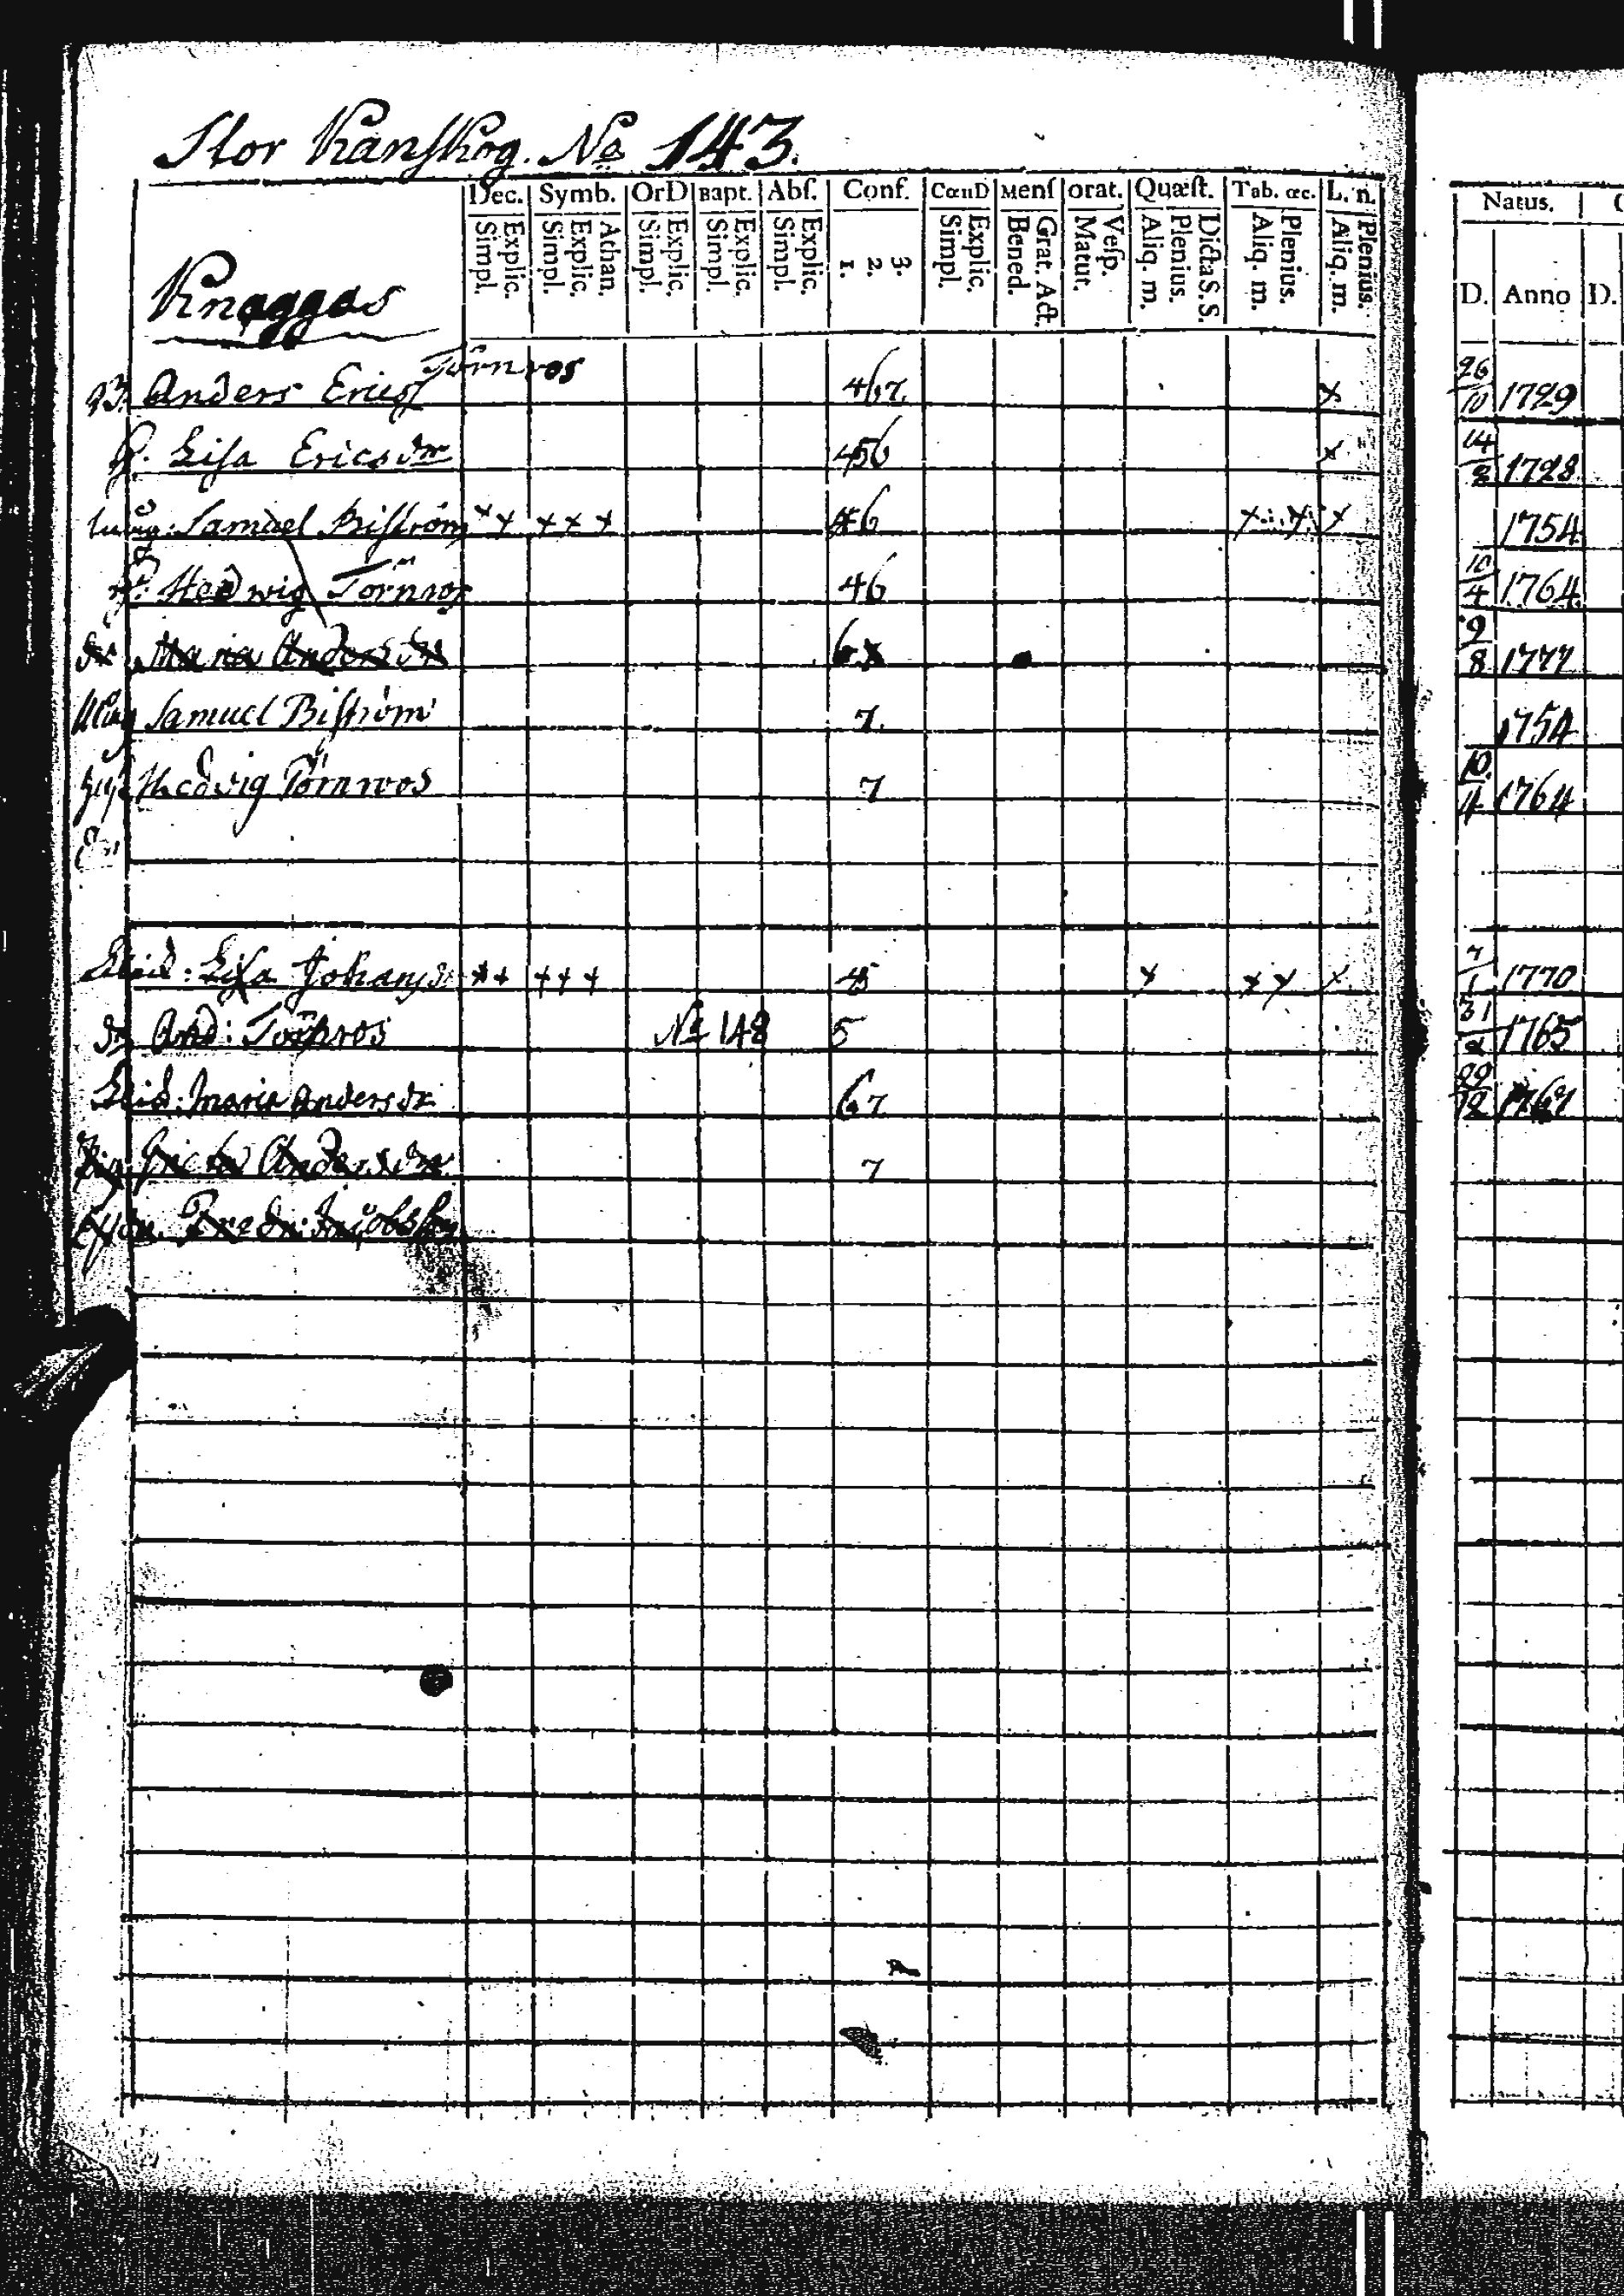 Stor Kanskog. No 143.
Dec. Symb. OrD Bapt. Abſ. Conf. CœnD Menſ orat. Quæſt. Tab. œc. L. n.
Explic. Simpl. Athan. Explic. Simpl. Explic. Simpl. Explic. Simpl. Explic. Simpl. 3. 2. 1. Explic. Simpl. Grat. Act. Bened. Veſp. Matut. Dicta S. S. Plenius. Aliq. m. Plenius. Aliq. m. Plenius. Aliq. m.
Natus.
D. Anno D.
Knaggas
Törnros
Anders Ericsſ 467 x 26/10 1729
H. Liſa Ericsdr 456 x 14/8 1728
Samuel Biſtröm x x x x x 46 x x x 1754
Hedwig Törnros 46 10/4 1764
Maria Andersdr 6 9/8 1777
Samuel Biſtröm 7. 1754
Hedvig Törnroos 7 10/4 1764
Liſa Johansdr x x x x x 45 x x x x 7/1 1770
And: Törnros No 148 5 31 1765
Maria Andersdr 67 29/12 1767
Andersdr 7